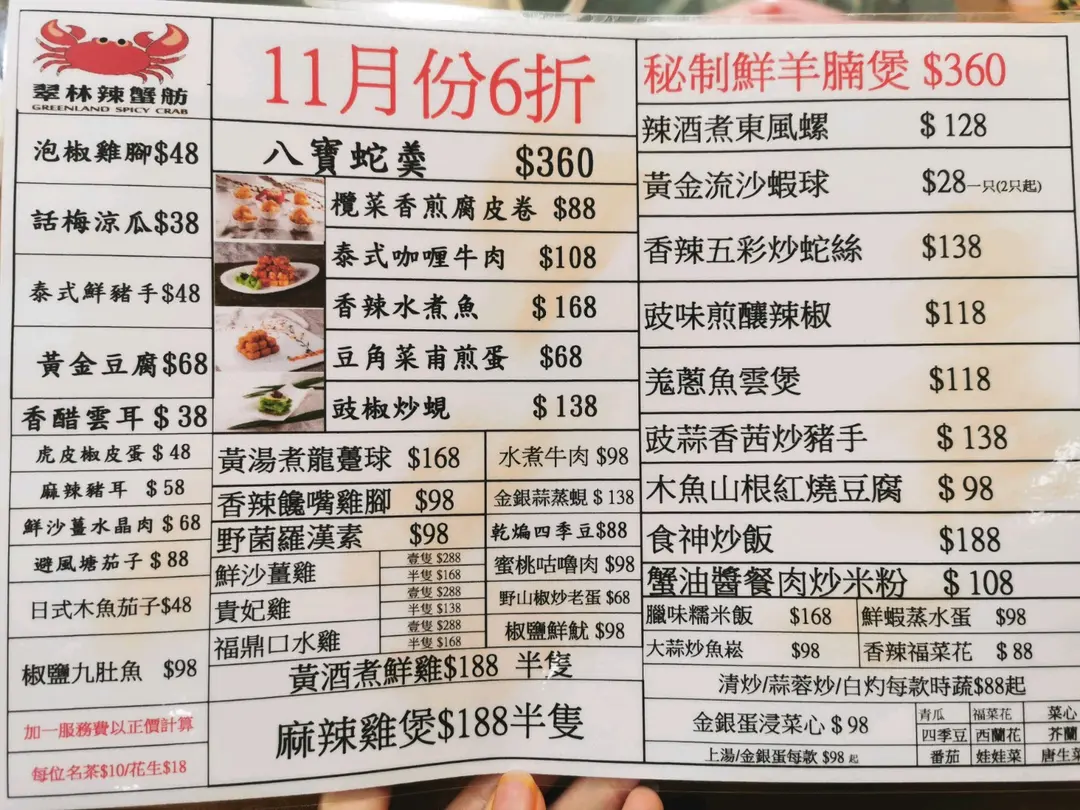 翠林辣蟹舫
GREENLAND SPICY CRAB
泡椒雞腳$48
話梅涼瓜$38
泰式鮮豬手$48
黃金豆腐$68
香醋雲耳$38
虎皮椒皮蛋$48
麻辣豬耳 $58
鮮沙薑水晶肉$68
避風塘茄子$88
日式木魚茄子$48
椒鹽九肚魚 $98
加一服務費以正價計算
每位名茶$10/花生$18
11月份6折
八寶蛇羹 $360
欖菜香煎腐皮卷 $88
泰式咖喱牛肉 $108
香辣水煮魚 $168
豆角菜甫煎蛋 $68
豉椒炒蜆 $138
黃湯煮龍躉球 $168
香辣饞嘴雞腳 $98
野菌羅漢素 $98
鮮沙薑雞
壹隻 $288
半隻 $168
貴妃雞
壹隻 $288
半隻 $138
福鼎口水雞
壹隻 $288
半隻 $168
水煮牛肉 $98
金銀蒜蒸蜆 $138
乾煸四季豆$88
蜜桃咕嚕肉 $98
野山椒炒老蛋 $68
椒鹽鮮魷 $98
黃酒煮鮮雞$188 半隻
麻辣雞煲$188半隻
秘制鮮羊腩煲 $360
辣酒煮東風螺 $128
黃金流沙蝦球 $28一只(2只起)
香辣五彩炒蛇絲 $138
豉味煎釀辣椒 $118
羗蔥魚雲煲 $118
豉蒜香茜炒豬手 $138
木魚山根紅燒豆腐 $98
食神炒飯 $188
蟹油醬餐肉炒米粉 $108
臘味糯米飯 $168
鮮蝦蒸水蛋 $98
大蒜炒魚崧 $98
香辣福菜花 $88
清炒/蒜蓉炒/白灼每款時蔬$88起
金銀蛋浸菜心 $98
上湯/金銀蛋每款 $98 起
青瓜 福菜花 菜心
四季豆 西蘭花 芥蘭
番茄 娃娃菜 唐生菜